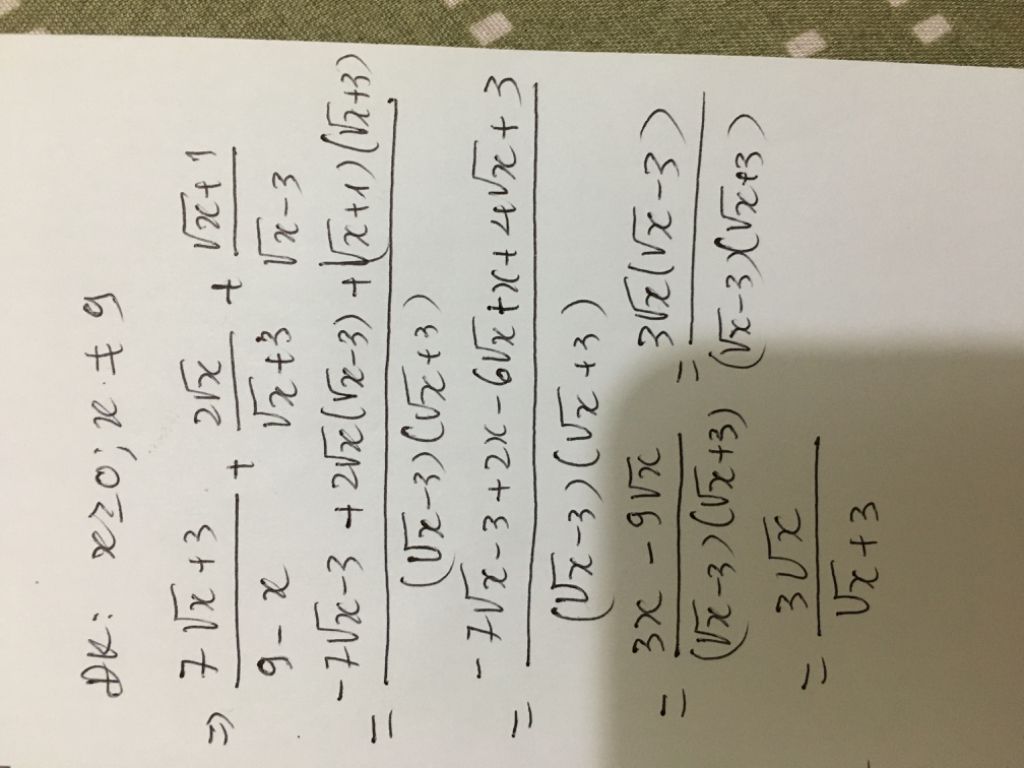 ĐK: x ≥ 0; x ≠ 9
⇒ \frac{7\sqrt{x}+3}{9-x} + \frac{2\sqrt{x}}{\sqrt{x}+3} + \frac{\sqrt{x}+1}{\sqrt{x}-3}
= \frac{-7\sqrt{x}-3+2\sqrt{x}(\sqrt{x}-3)+(\sqrt{x}+1)(\sqrt{x}+3)}{(\sqrt{x}-3)(\sqrt{x}+3)}
= \frac{-7\sqrt{x}-3+2x-6\sqrt{x}+x+4\sqrt{x}+3}{(\sqrt{x}-3)(\sqrt{x}+3)}
= \frac{3x-9\sqrt{x}}{(\sqrt{x}-3)(\sqrt{x}+3)} = \frac{3\sqrt{x}(\sqrt{x}-3)}{(\sqrt{x}-3)(\sqrt{x}+3)}
= \frac{3\sqrt{x}}{\sqrt{x}+3}